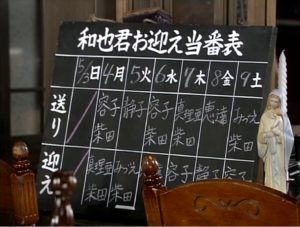 和也君お迎え当番表
5/3日 4月 5火 6水 7木 8金 9土
送り 容子 静子 容子 真理亜 恵達 みつ江
柴田 柴田 柴田
迎え 真理亜 みつ江 容子 静子 容子
柴田 柴田